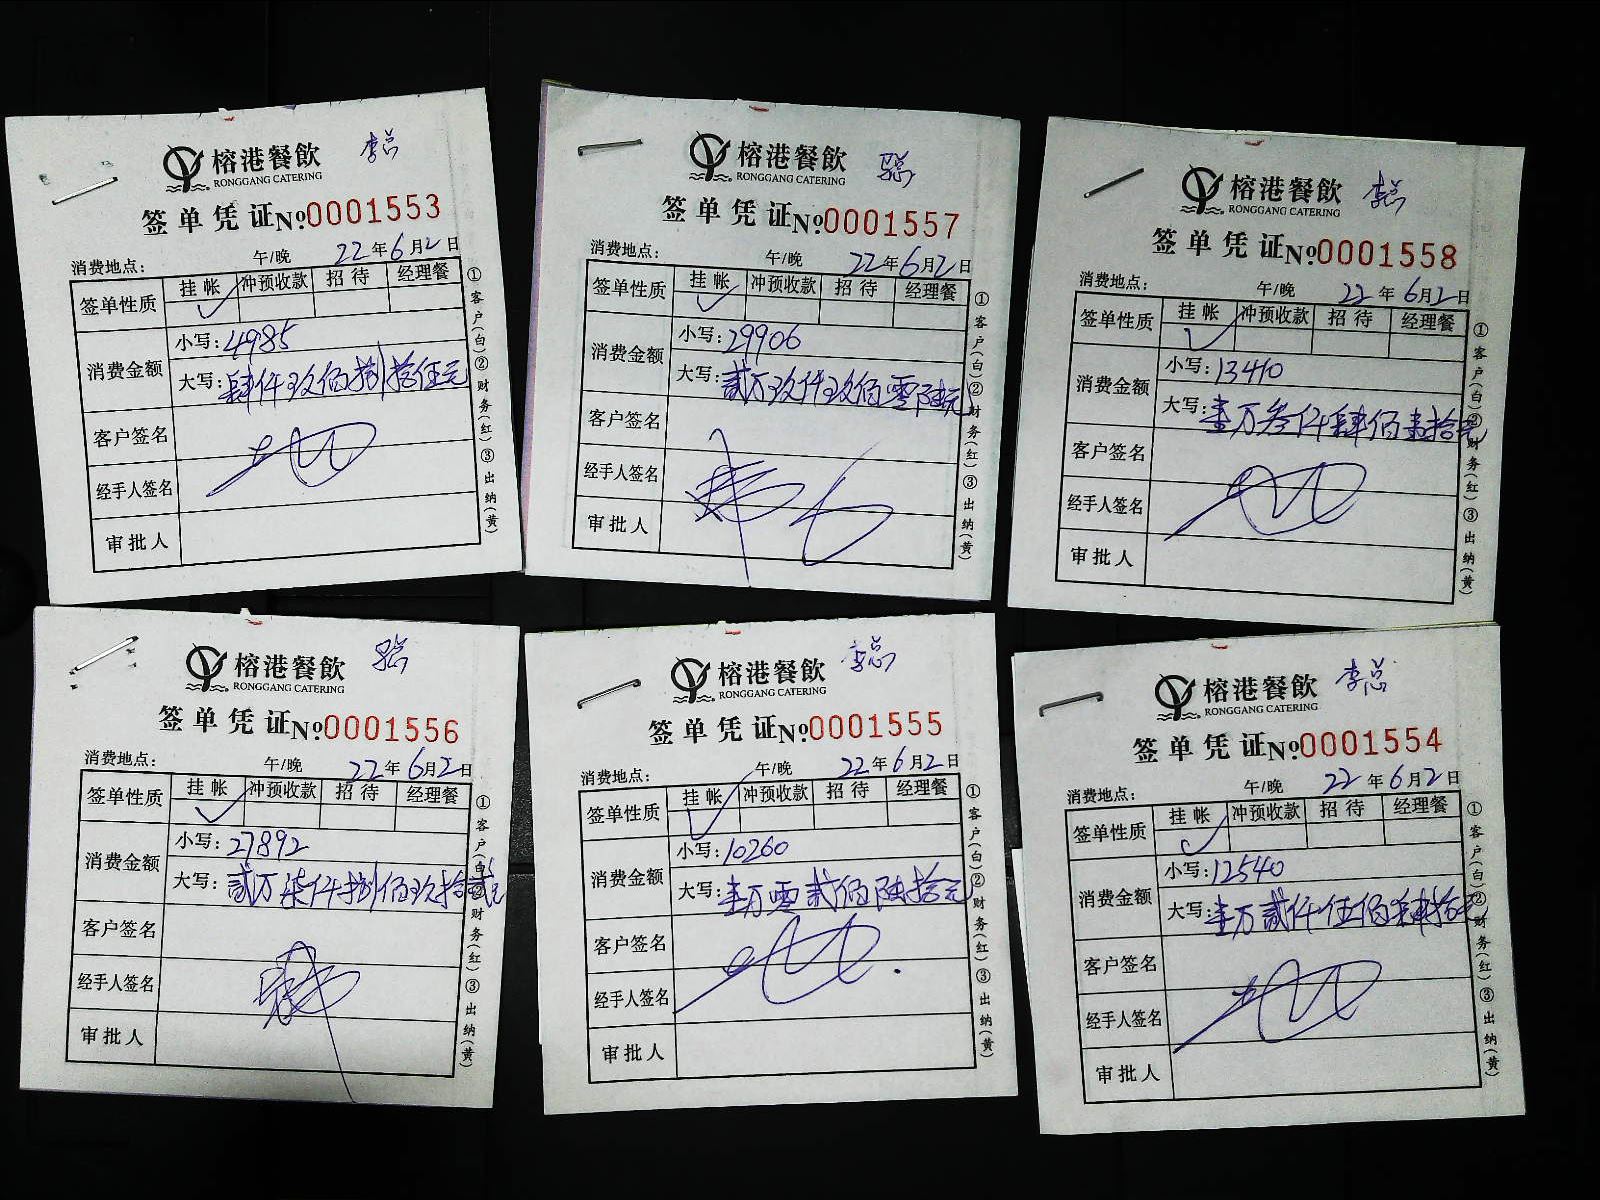 榕港餐飲 李总
RONGGANG CATERING
签单凭证 №0001553
消费地点： 午/晚 22年6月2日
签单性质 挂帐 冲预收款 招待 经理餐
消费金额 小写：4985
大写：肆仟玖佰捌拾伍元
客户签名
经手人签名
审批人
①客户(白)②财务(红)③出纳(黄)
榕港餐飲
RONGGANG CATERING
签单凭证 №0001557
消费地点： 午/晚 22年6月2日
签单性质 挂帐 冲预收款 招待 经理餐
消费金额 小写：29906
大写：贰万玖仟玖佰零陆元
客户签名
经手人签名
审批人
①客户(白)②财务(红)③出纳(黄)
榕港餐飲 李总
RONGGANG CATERING
签单凭证 №0001558
消费地点： 午/晚 22年6月2日
签单性质 挂帐 冲预收款 招待 经理餐
消费金额 小写：13410
大写：壹万叁仟肆佰壹拾元
客户签名
经手人签名
审批人
①客户(白)②财务(红)③出纳(黄)
榕港餐飲
RONGGANG CATERING
签单凭证 №0001556
消费地点： 午/晚 22年6月2日
签单性质 挂帐 冲预收款 招待 经理餐
消费金额 小写：27892
大写：贰万柒仟捌佰玖拾贰元
客户签名
经手人签名
审批人
①客户(白)②财务(红)③出纳(黄)
榕港餐飲 李总
RONGGANG CATERING
签单凭证 №0001555
消费地点： 午/晚 22年6月2日
签单性质 挂帐 冲预收款 招待 经理餐
消费金额 小写：10260
大写：壹万零贰佰陆拾元
客户签名
经手人签名
审批人
①客户(白)②财务(红)③出纳(黄)
榕港餐飲 李总
RONGGANG CATERING
签单凭证 №0001554
消费地点： 午/晚 22年6月2日
签单性质 挂帐 冲预收款 招待 经理餐
消费金额 小写：12540
大写：壹万贰仟伍佰肆拾元
客户签名
经手人签名
审批人
①客户(白)②财务(红)③出纳(黄)